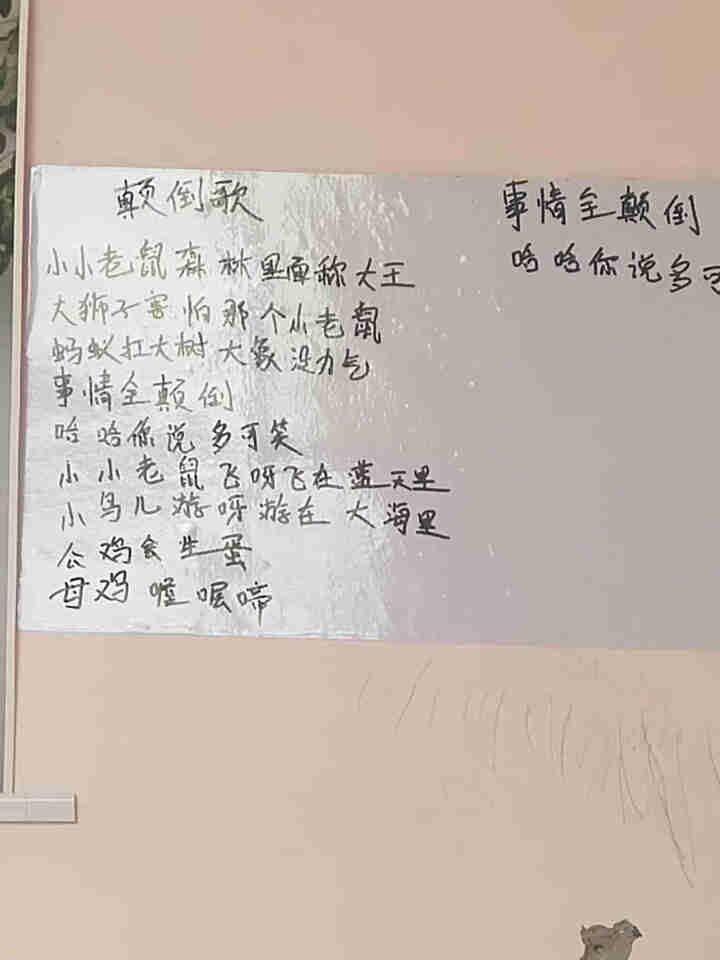 颠倒歌
小小老鼠森林里面称大王
大狮子害怕那个小老鼠
蚂蚁扛大树大象没力气
事情全颠倒
哈哈你说多可笑
小小老鼠飞呀飞在蓝天里
小鸟儿游呀游在大海里
公鸡会生蛋
母鸡喔喔啼
事情全颠倒
哈哈你说多可